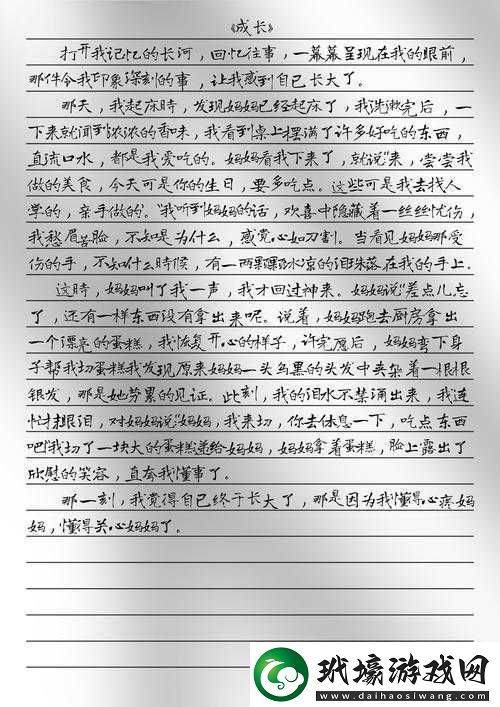 《成长》
打开我记忆的长河，回忆往事，一幕幕呈现在我的眼前，
那件令我印象深刻的事，让我感到自己长大了。
那天，我起床時，发现妈妈已经起床了，我洗漱完后，一
下来就闻到浓浓的香味，我看到桌上摆满了许多好吃的东西，
直流口水，都是我爱吃的。妈妈看我下来了，就说“来，尝尝我
做的美食，今天可是你的生日，要多吃点。这些可是我去找人
学的，亲手做的”。我听到妈妈的话，欢喜中隐藏着一丝丝忧伤，
我愁眉苦脸，不知是为什么，感觉心如刀割。当看见妈妈那受
伤的手，不知什么時候，有一两颗颗冰凉的泪珠落在我的手上。
这時，妈妈叫了我一声，我才回过神来。妈妈说“差点儿忘
了，还有一样东西没有拿出来呢。说着，妈妈跑去厨房拿出
一个漂亮的蛋糕，我恢复开心的样子，许完愿后，妈妈弯下身
子帮我切蛋糕我发现原来妈妈一头乌黑的头发中夹杂着一根根
银发，那是她劳累的见证。此刻，我的泪水不禁涌出来，我连
忙抹眼泪，对妈妈说“妈妈，我来切，你去休息一下，吃点东西
吧”我切了一块大的蛋糕递给妈妈，妈妈拿着蛋糕，脸上露出了
欣慰的笑容，直夸我懂事了。
那一刻，我觉得自己终于长大了，那是因为我懂得心疼妈
妈，懂得关心妈妈了。
玳壕游戏网
www.daihaosiwang.com